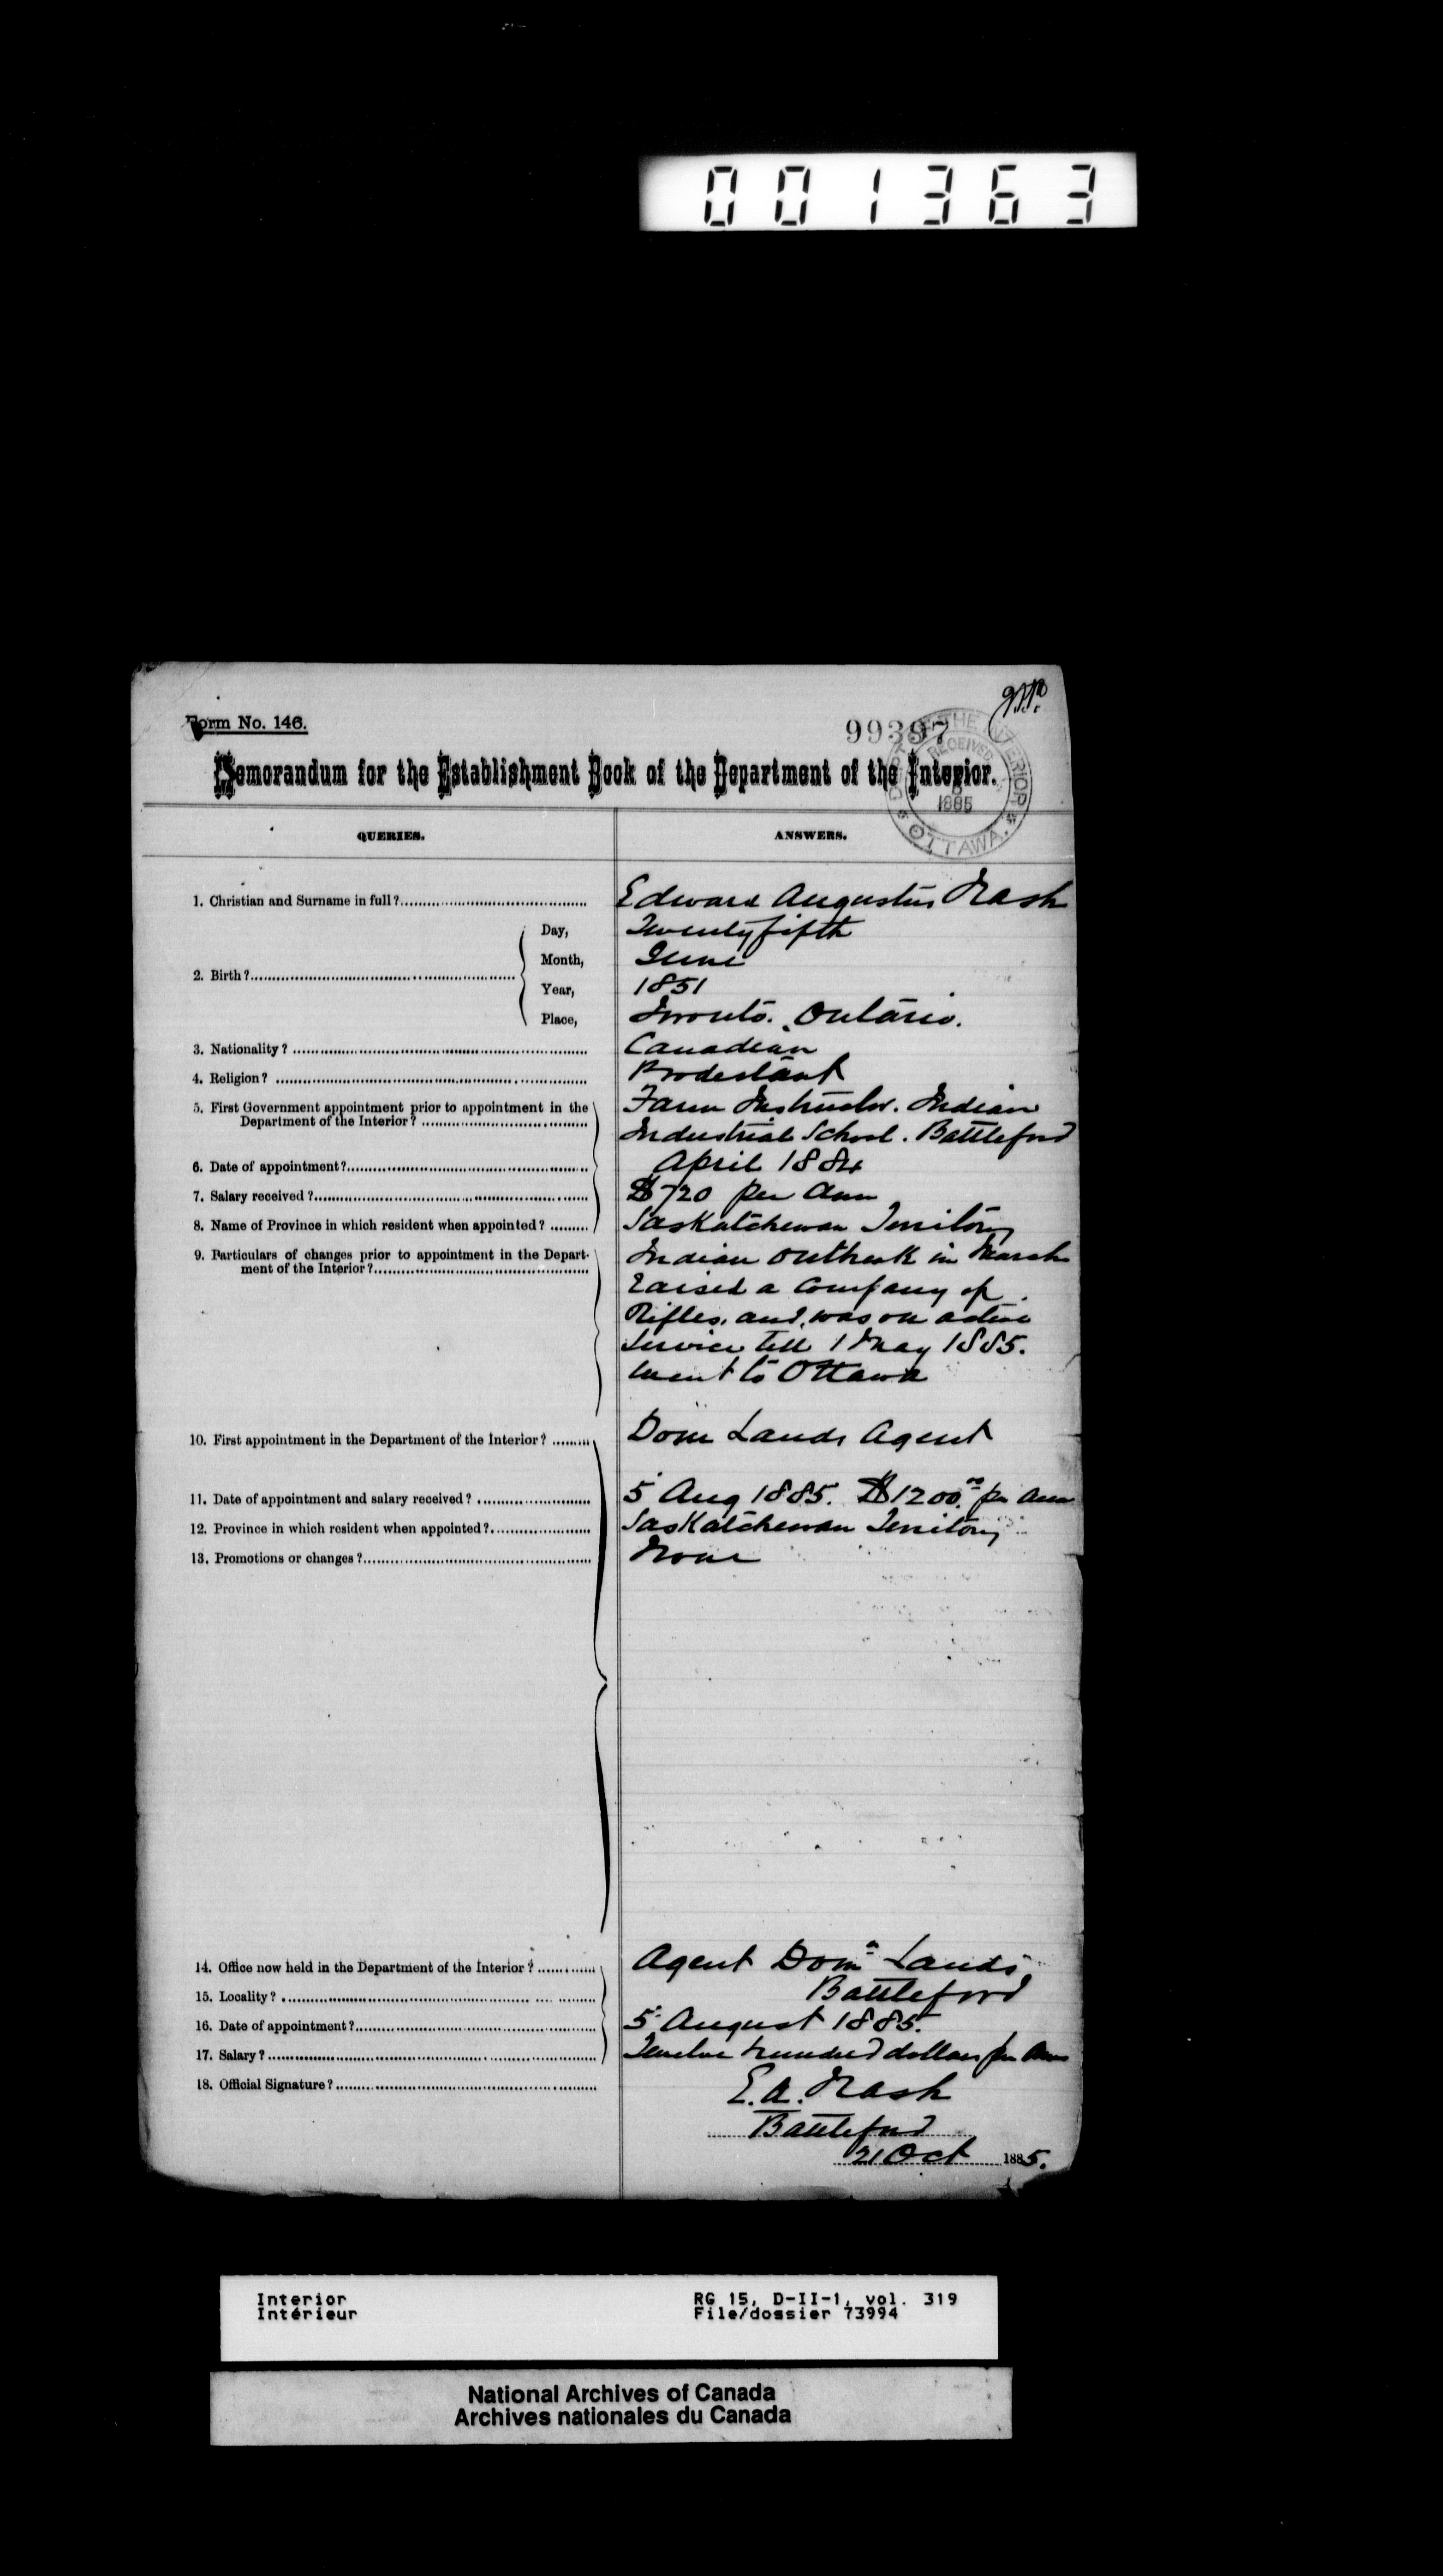 001363
Form No. 146.
99397
Memorandum for the Establishment Book of the Department of the Interior.
THE INTERIOR
RECEIVED
1885
OTTAWA.
QUERIES. ANSWERS.
1. Christian and Surname in full? Edward Augustus Nash
2. Birth? Day, Twenty fifth
Month, June
Year, 1851
Place, Toronto. Ontario.
3. Nationality? Canadian
4. Religion? Prodestant
5. First Government appointment prior to appointment in the Farm Instructor. Indian
Department of the Interior? Industrial School. Battleford
6. Date of appointment? April 1884
7. Salary received? $720 per Ann
8. Name of Province in which resident when appointed? Saskatchewan Territory
9. Particulars of changes prior to appointment in the Depart- Indian outbreak in March
ment of the Interior? raised a Company of
Rifles, and was on active
Service till 1 May 1885.
went to Ottawa
10. First appointment in the Department of the Interior? Dom Lands Agent
11. Date of appointment and salary received? 5 Aug 1885. $1200.00 per Ann
12. Province in which resident when appointed? Saskatchewan Territory
13. Promotions or changes? None
14. Office now held in the Department of the Interior? Agent Domn Lands
15. Locality? Battleford
16. Date of appointment? 5 August 1885.
17. Salary? Twelve hundred dollars per Ann
18. Official Signature? E.A. Nash
Battleford
21 Oct 1885.
Interior RG 15, D-II-1, vol. 319
Intérieur File/dossier 73994
National Archives of Canada
Archives nationales du Canada